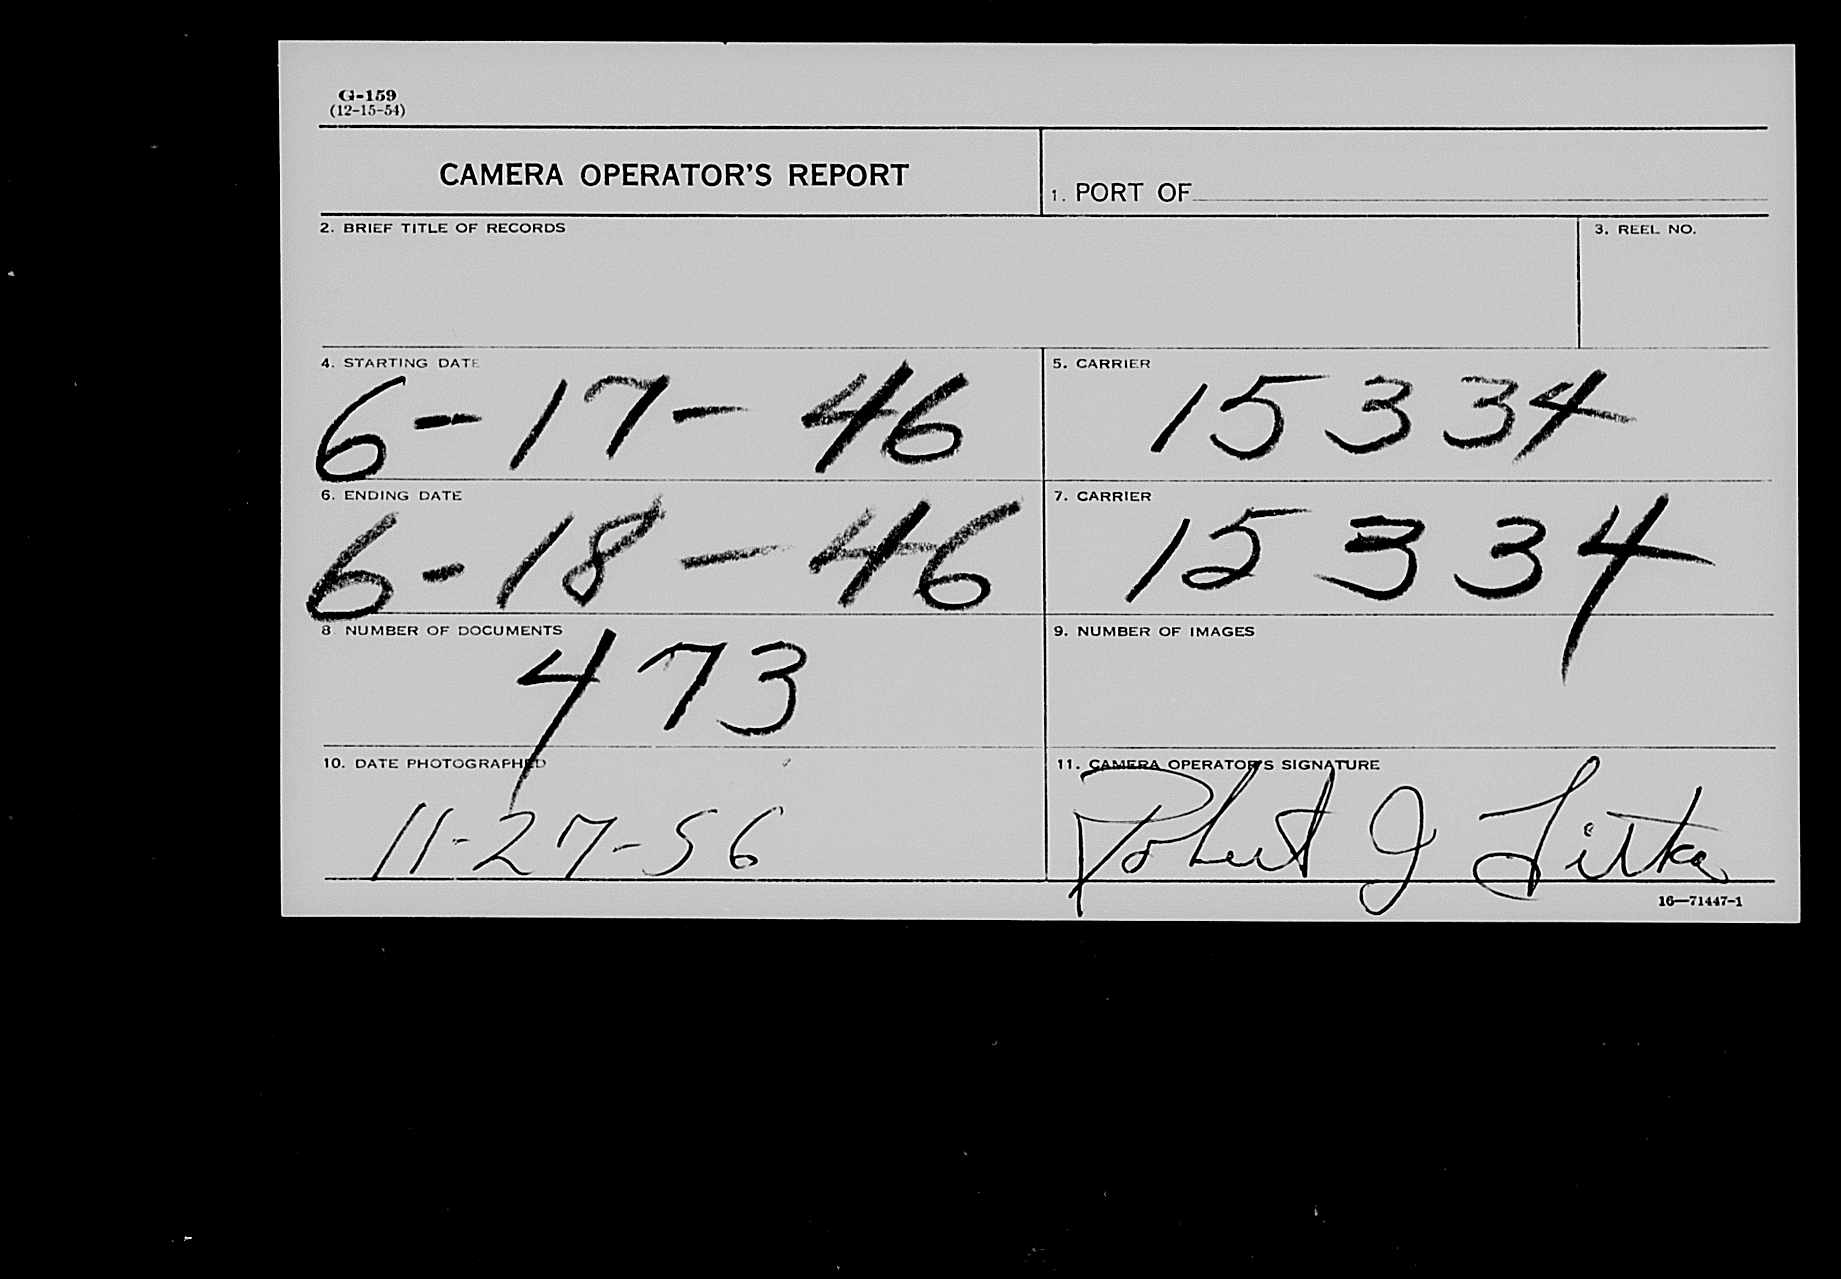 G-159
(12-15-54)
CAMERA OPERATOR'S REPORT
1. PORT OF
2. BRIEF TITLE OF RECORDS
3. REEL NO.
4. STARTING DATE
6-17-46
5. CARRIER
15334
6. ENDING DATE
6-18-46
7. CARRIER
15334
8 NUMBER OF DOCUMENTS
473
9. NUMBER OF IMAGES
10. DATE PHOTOGRAPHED
11-27-56
11. CAMERA OPERATOR'S SIGNATURE
Robert J
16—71447-1